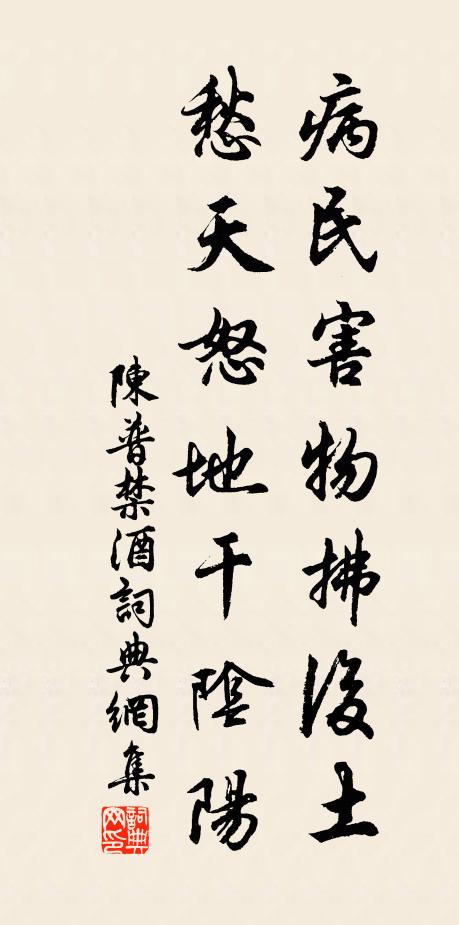 病民害物拂後土
愁天怒地干陰陽
陳普禁酒詞典網集
詞典網印